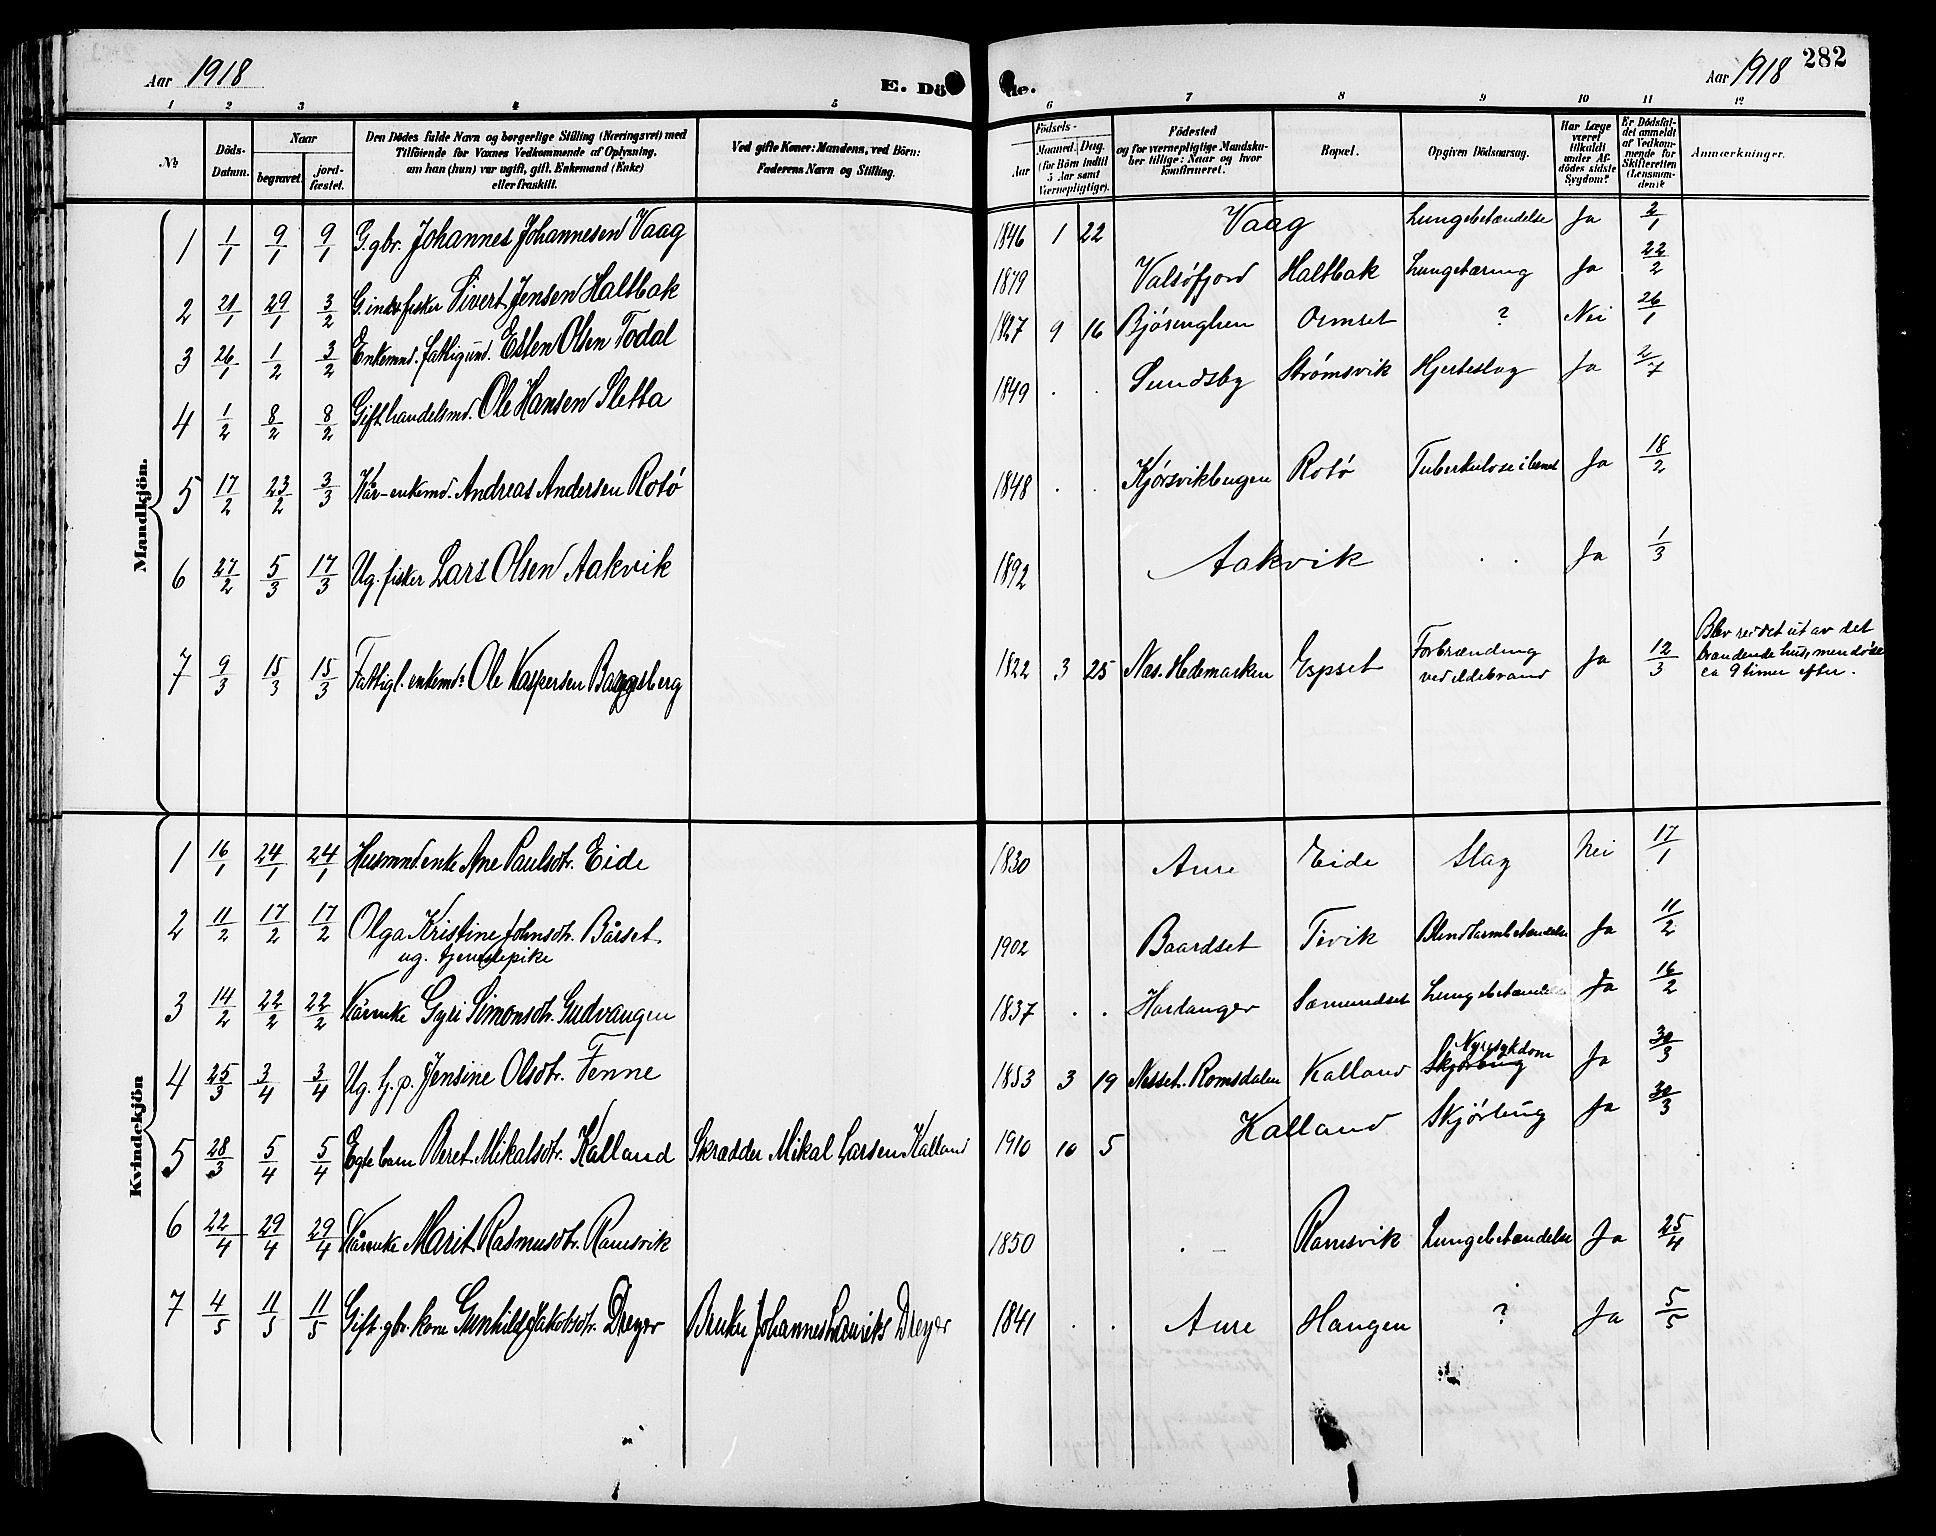 Aar 1918 E. Dö de. Aar 1918 282
1 2 3 4 5 6 7 8 9 10 11 12
No. Döds-Datum. Naar begravet. jordfæstet. Den Dödes fulde Navn og borgerlige Stilling (Næringsvei) med Tilföiende for Voxnes Vedkommende af Oplysning, om han (hun) var ugift, gift, Enkemand (Enke) eller fraskilt. Ved gifte Koner: Mandens, ved Börn: Faderens Navn og Stilling. Födsels- Aar Maaned. Dag. (for Börn indtil 5 Aar samt Værnepligtige). Födested og for værnepligtige Mandskaber tillige: Naar og hvor konfirmeret. Bopæl. Opgiven Dödsaarsag. Har Læge været tilkaldt under Afdödes sidste Sygdom? Er Dödsfaldet anmeldt af Vedkommende for Skifteretten (Lensmanden)? Anmærkninger.
Mandkjön.
1 1/1 9/1 9/1 G. gbr. Johannes Johannesen Vaag 1846 1 22 Vaag Lungebetændelse Ja 2/1
2 21/1 29/1 3/2 G. inderfisker Sivert Jensen Haltbak 1879 Valsøfjord Haltbak Lungetæring Ja 22/2
3 26/1 1/2 3/2 Enkemnd. fattigund. Esten Olsen Todal 1827 9 16 Bjørenghen Ormset ? Nei 26/1
4 1/2 8/2 8/2 Gift handelsmd. Ole Hansen Sletta 1849 . . Sundsby Strømsvik Hjerteslag Ja 2/7
5 17/2 23/2 3/3 Kår-enkemd. Andreas Andersen Rotø 1848 . . Kjørsvikbugen Rotø Tuberkulose i benet Ja 18/2
6 27/2 5/3 17/3 Ug. fisker Lars Olsen Aakvik 1892 Aakvik . . Ja 1/3
7 9/3 15/3 15/3 Fattigl. enkemd. Ole Kaspersen Baggsberg 1822 3 25 Næs. Hedemarken Espset Forbrænding ved ildebrand Ja 12/3 Blev reddet ut av det brændende hus, men døde ca 9 timer efter.
Kvindekjön
1 16/1 24/1 24/1 Husmnd enke Ane Paulsdtr. Eide 1830 Aure Eide Slag Nei 17/1
2 11/2 17/2 17/2 Olga Kristine Johnsdtr. Bårset. 1902 Baardset Tevik Blindtarmbetændelse Ja 11/2
ug. tjenestepike
3 14/2 22/2 22/2 Kårenke Gyri Simonsdtr. Gudvangen 1837 . . Hardanger Sæmundset Lungebetændelse Ja 16/2
4 25/3 3/4 3/4 Ug. G. p. Jensine Olsdtr. Fenne 1853 3 19 Nesset. Romsdalen Kalland Skjørbug Nyresykdom Ja 30/3
5 28/3 5/4 5/4 Egte barn Beret Mikalsdtr. Kalland Skrædder Mikal Larsen Kalland 1910 10 5 Kalland Skjørbug Ja 30/3
6 22/4 29/4 29/4 Kårenke Marit Rasmusdtr. Ramsvik 1850 . – Ramsvik Lungebetændelse Ja 25/4
7 4/5 11/5 11/5 Gift. gbr. kone Gunhild Jakobsdtr. Dreyer Bruker Johannes Lauriks Dreyer 1841 . . Aure Haugen ? Ja 5/5